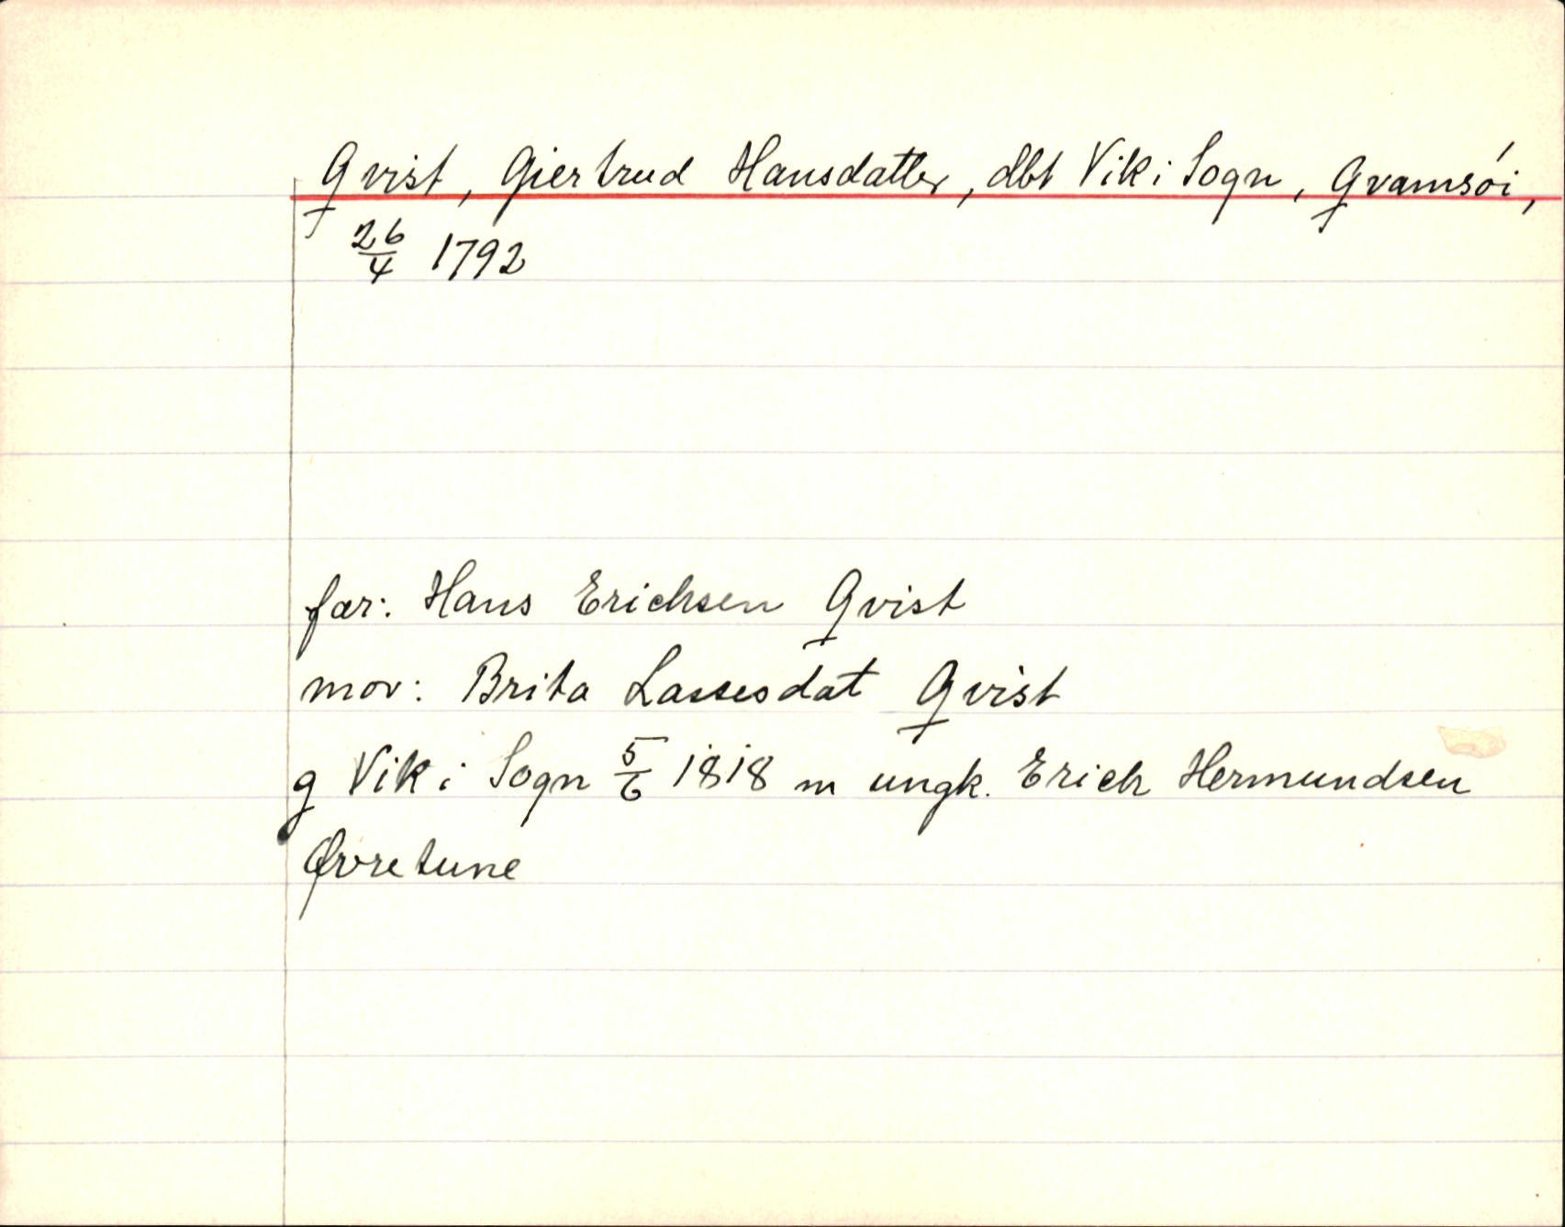 Qvist, Giertrud Hansdatter, dbt Vik i Sogn, Qvamsói,
26/4 1792
far: Hans Erichsen Qvist
mor: Brita Lassesdat Qvist
g Vik i Sogn 5/6 1818 m ungk. Erich Hermundsen
Øvretune